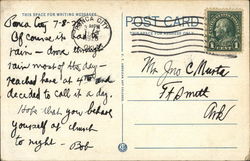 THIS SPACE FOR WRITING MESSAGES
POST CARD
Ponca City 7-8-
Of course it had to
rain - drove through
rain most of the day -
reached here at 4 PM and
decided to call it a day.
Hope that you behave
yourself at church
to night - Bob
Mr. Jno C
Ft Smith
Ark
1